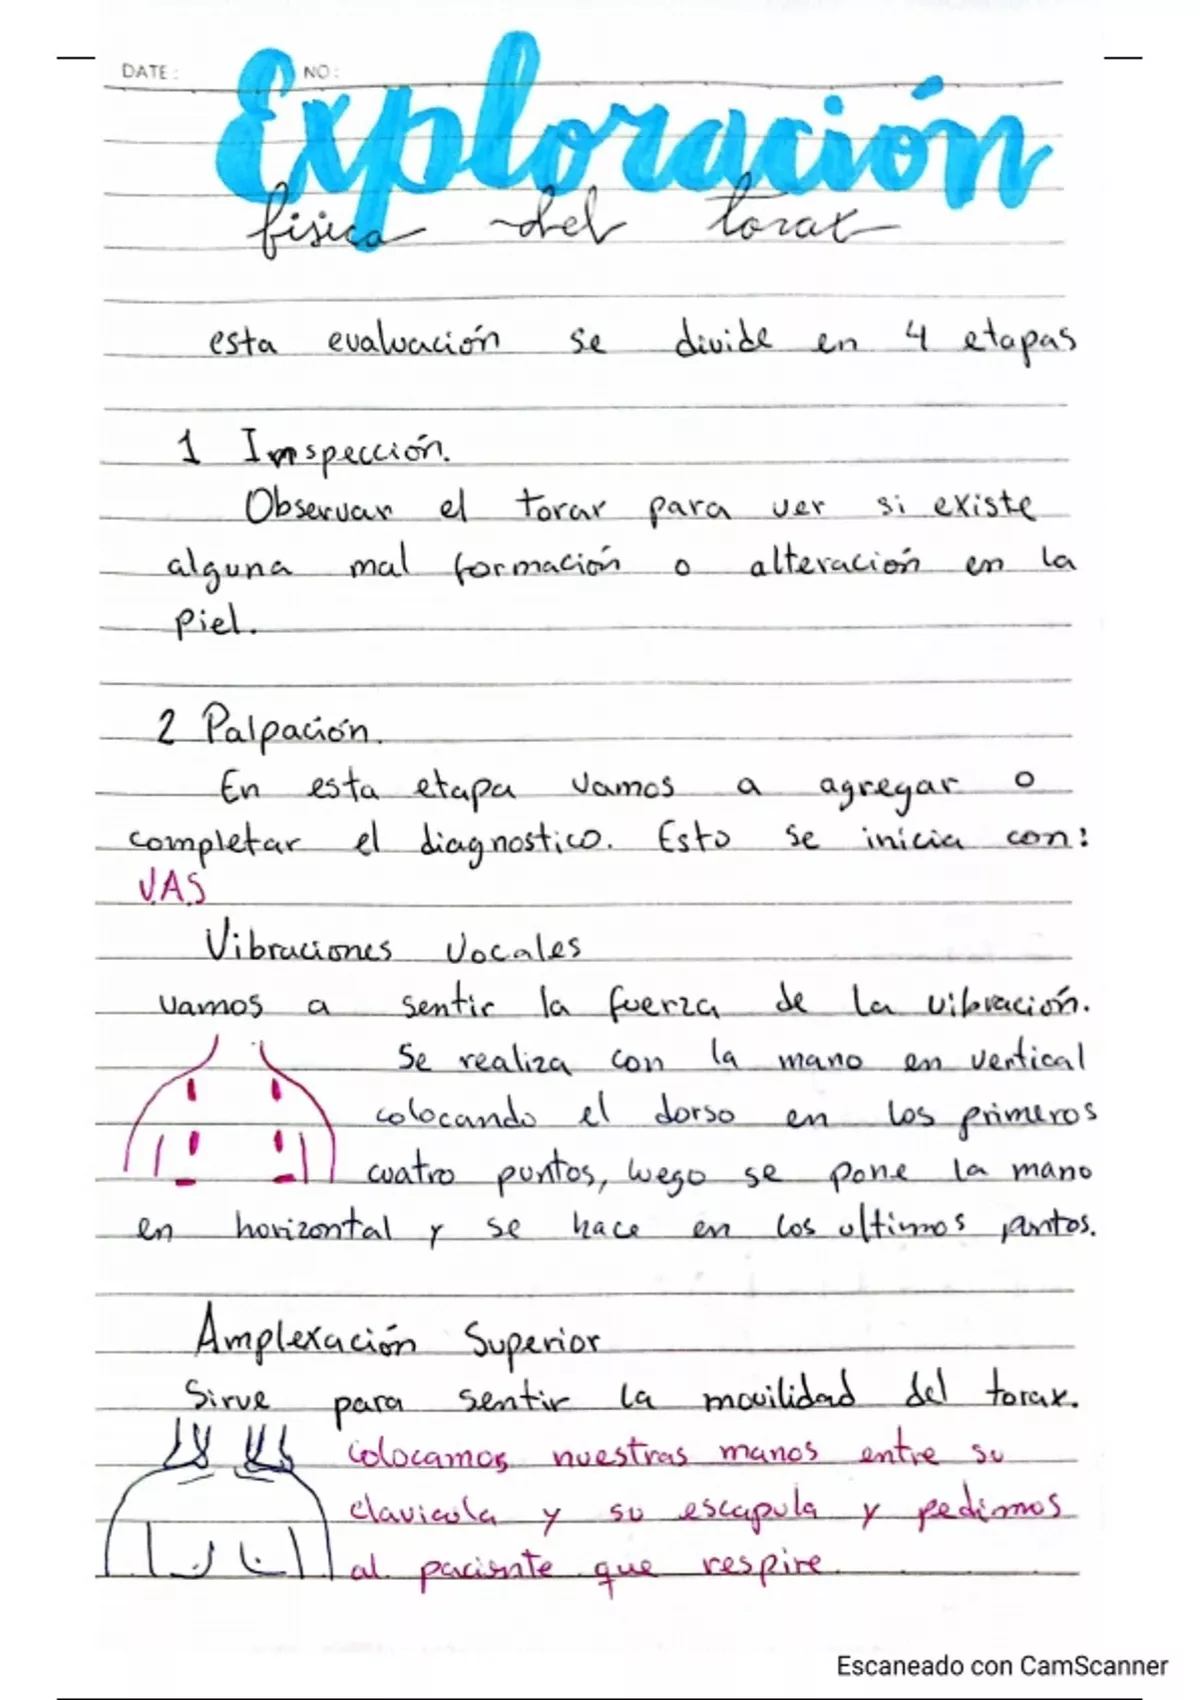 DATE: NO:
Exploración
fisica del torax
esta evaluación se divide en 4 etapas
1 Inspección.
Observar el torax para ver si existe
alguna mal formación o alteración en la
piel.
2 Palpación.
En esta etapa vamos a agregar o
completar el diagnostico. Esto se inicia con:
V.A.S
Vibraciones vocales
vamos a sentir la fuerza de la vibración.
Se realiza con la mano en vertical
colocando el dorso en los primeros
cuatro puntos, luego se pone la mano
en horizontal y se hace en los ultimos puntos.
Amplexación Superior
Sirve para sentir la movilidad del torax.
colocamos nuestras manos entre su
clavicula y su escapula y pedimos
al paciente que respire.
Escaneado con CamScanner